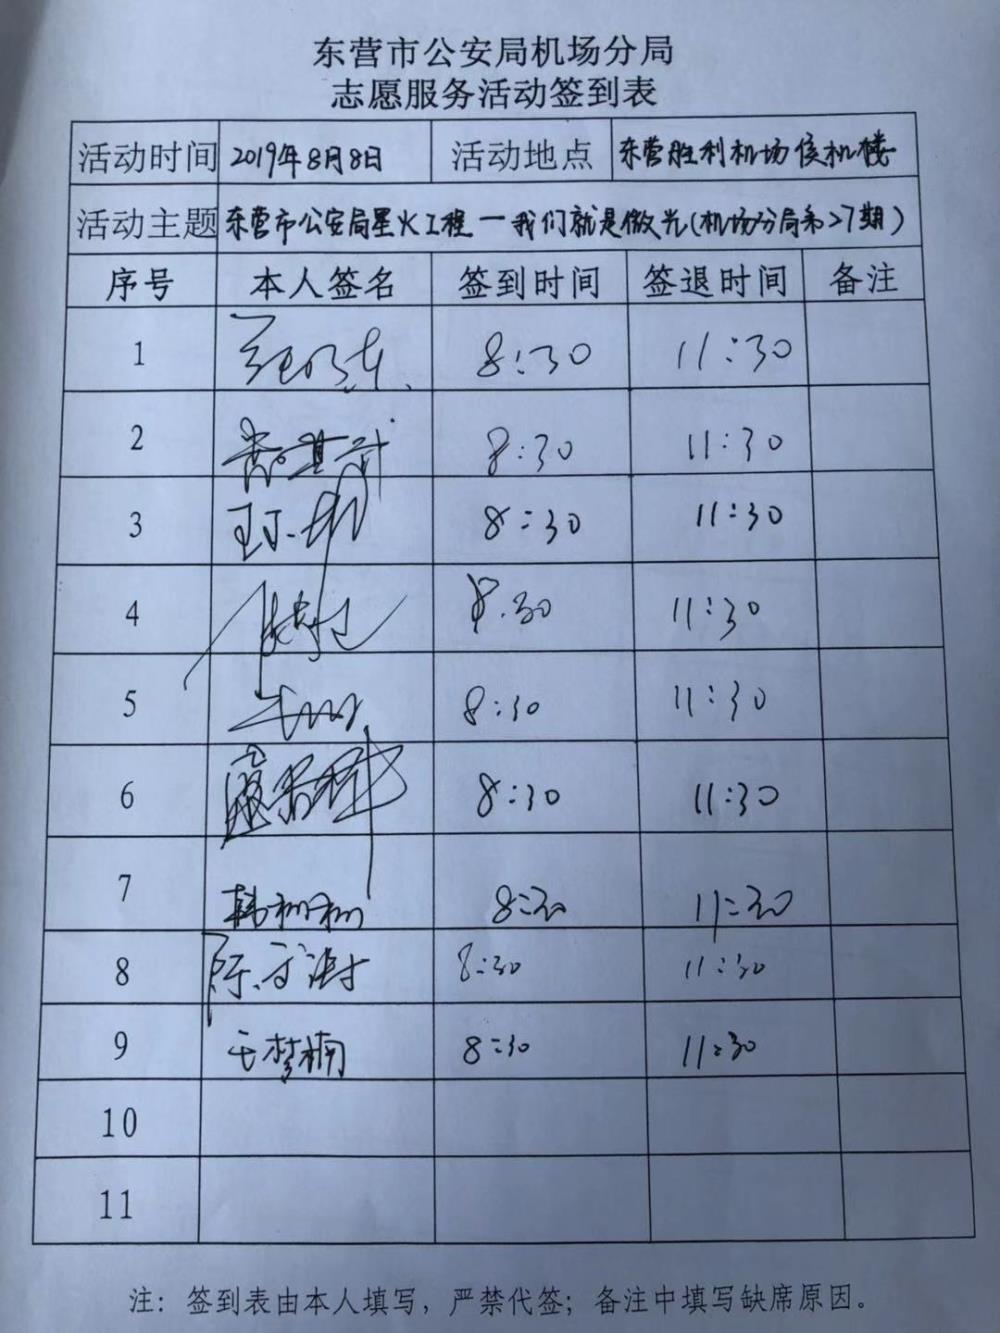 东营市公安局机场分局
志愿服务活动签到表
活动时间 2019年8月8日 活动地点 东营胜利机场候机楼
活动主题 东营市公安局星火工程一我们就是微光(机场分局第27期)
序号 本人签名 签到时间 签退时间 备注
1 8:30 11:30
2 8:30 11:30
3 8:30 11:30
4 8:30 11:30
5 8:30 11:30
6 8:30 11:30
7 韩树树 8:30 11:30
8 8:30 11:30
9 王梦楠 8:30 11:30
10
11
注：签到表由本人填写，严禁代签；备注中填写缺席原因。